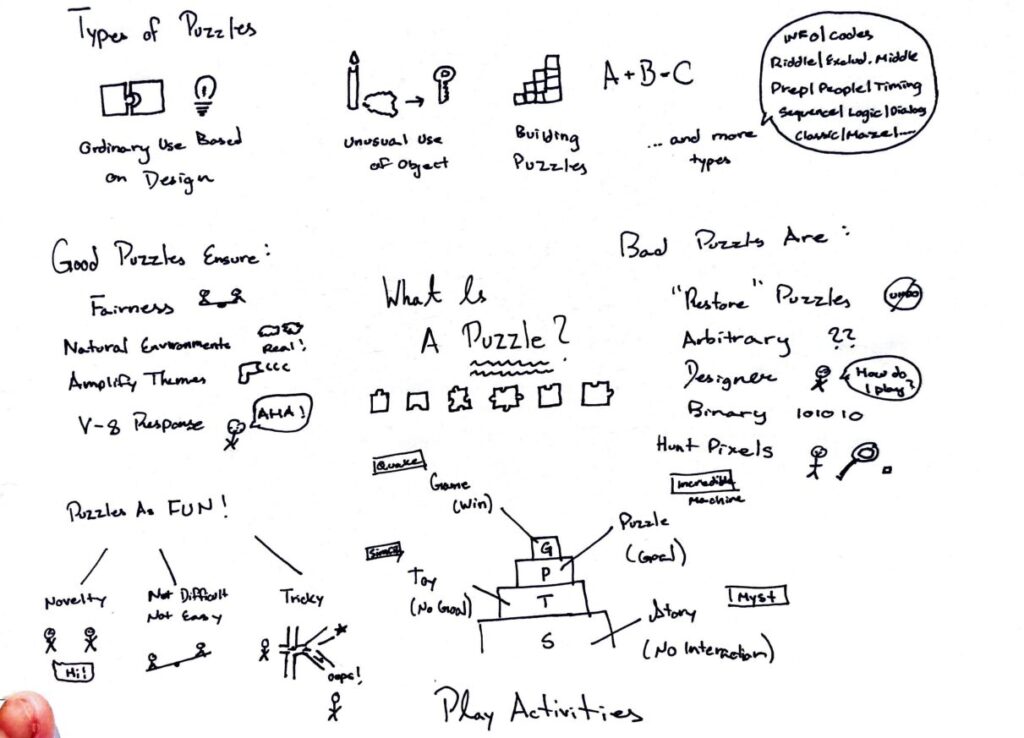 Types of Puzzles
Ordinary Use Based
on Design
Unusual Use
of Object
Building
Puzzles
A + B = C
... and more
types
INFO | Codes
Riddle | Exclud. Middle
Prep | People | Timing
Sequence | Logic | Dialog
Classic | Maze | ....
Good Puzzles Ensure:
Fairness
Natural Environments
Real!
Amplify Themes
V-8 Response
AHA!
What Is
A Puzzle?
Bad Puzzles Are:
"Restore" Puzzles
UNDO
Arbitrary ??
Designer
How do
I play?
Binary 101010
Hunt Pixels
Puzzles As FUN!
Novelty
Hi!
Not Difficult
Not Easy
Tricky
oops!
Quake
Game
(Win)
Incredible
Machine
Puzzle
(Goal)
Toy
(No Goal)
Myst
Story
(No Interaction)
G
P
T
S
Play Activities